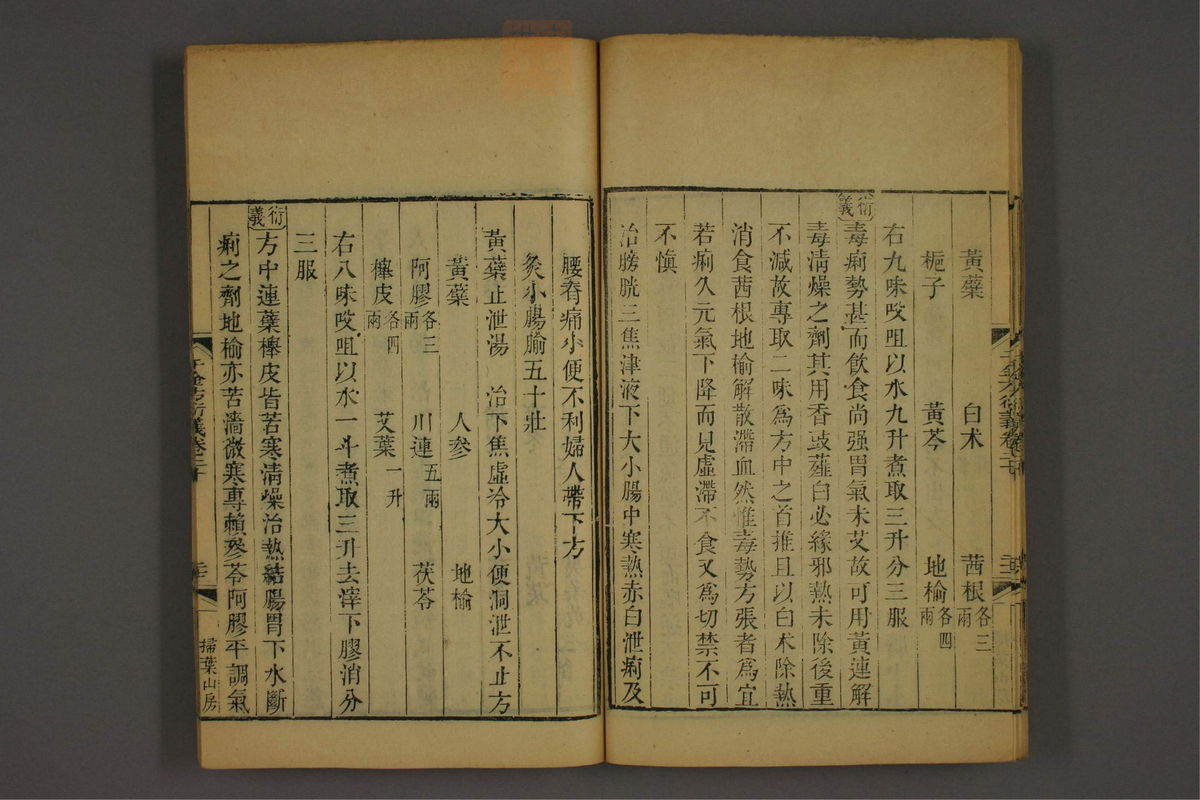 黃蘗 白术 茜根各三兩
梔子 黃芩 地榆各四兩
右九味㕮咀以水九升煮取三升分三服
衍義
毒痢勢甚而飲食尚强胃氣未艾故可用黃連解
毒淸燥之劑其用香豉薤白必緣邪熱未除後重
不減故專取二味爲方中之首推且以白术除熱
消食茜根地榆解散滯血然惟毒勢方張者爲宜
若痢久元氣下降而見虛滯不食又爲切禁不可
不愼
治膀胱三焦津液下大小腸中寒熱赤白泄痢及
腰脊痛小便不利婦人帶下方
灸小腸腧五十壯
黃蘗止泄湯 治下焦虛冷大小便洞泄不止方
黃蘗 人參 地榆
阿膠各三兩 川連五兩 茯苓
櫸皮各四兩 艾葉一升
右八味㕮咀以水一斗煮取三升去滓下膠消分
三服
衍義
方中連蘗櫸皮皆苦寒淸燥治熱結腸胃下水斷
痢之劑地榆亦苦濇微寒專賴參苓阿膠平調氣
千金方衍義卷二十
掃葉山房